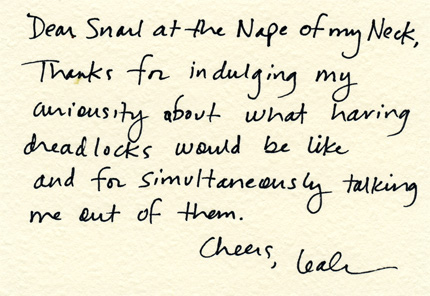 Dear Snarl at the Nape of my Neck,
Thanks for indulging my
curiosity about what having
dreadlocks would be like
and for simultaneously talking
me out of them.
Cheers, Leah